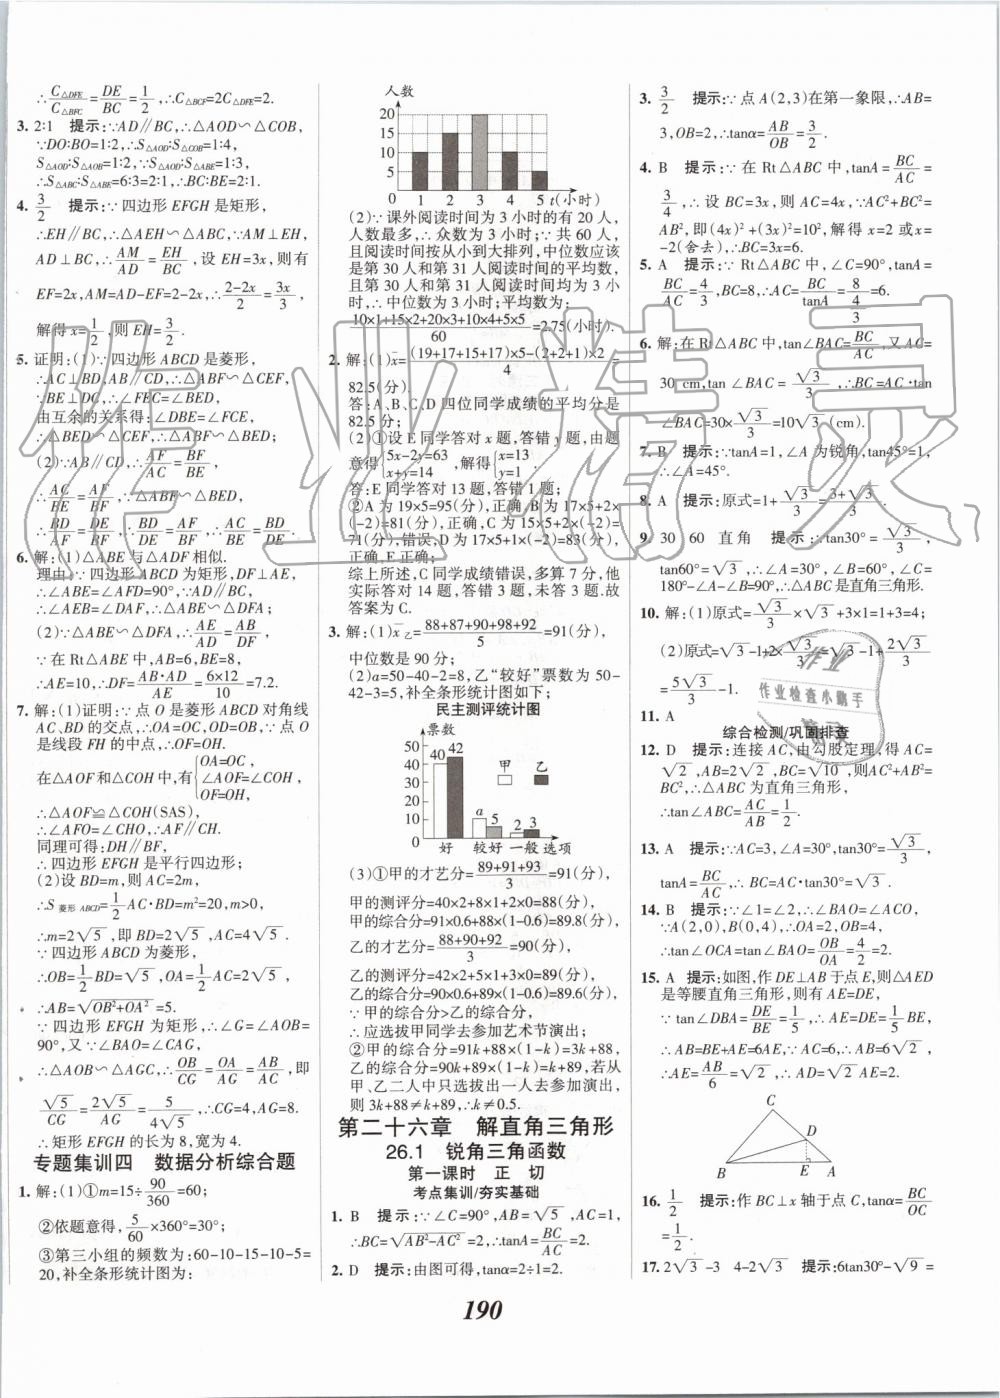 ∴C△DFE/C△BFC=DE/BC=1/2,∴C△BCF=2C△DFE=2.
3. 2:1 提示:∵AD∥BC,∴△AOD∽△COB,
∵DO:BO=1:2,∴S△AOD:S△COB=1:4,
S△AOD:S△AOB=1:2,∵S△AOD:S△ABE=1:3,
∴S△ABC:S△ABE=6:3=2:1,∴BC:BE=2:1.
4. 3/2 提示:∵四边形 EFGH 是矩形,
∴EH∥BC,∴△AEH∽△ABC,∵AM⊥EH,
AD⊥BC,∴AM/AD=EH/BC,设 EH=3x,则有
EF=2x,AM=AD-EF=2-2x,∴(2-2x)/2=3x/3,
解得x=1/2,则 EH=3/2.
5. 证明:(1)∵四边形 ABCD 是菱形,
∴AC⊥BD,AB∥CD,∴△ABF∽△CEF,
∵BE⊥DC,∴∠FEC=∠BED,
由互余的关系得:∠DBE=∠FCE,
∴△BED∽△CEF,∴△BED∽△ABF;
(2)∵AB∥CD,∴AF/AB... 
∴AC/BE=AF/BF,∵△BED∽△ABF,
∴BD/AF=DE/BF,∴BD/DE=AF/BF,∴AC/BE=BD/DE.
6. 解:(1)△ABE 与△ADF 相似.
理由:∵四边形 ABCD 为矩形,DF⊥AE,
∴∠ABE=∠AFD=90°,∵AD∥BC,
∴∠AEB=∠DAF,∴△ABE∽△DFA;
(2)∵△ABE∽△DFA,∴AE/AD=AB/DF,
∵在 Rt△ABE 中,AB=6,BE=8,
∴AE=10,∴DF=AB·AD/AE=6×12/10=7.2.
7. 解:(1)证明:∵点 O 是菱形 ABCD 对角线
AC、BD 的交点,∴OA=OC,OD=OB,∵点 O
是线段 FH 的中点,∴OF=OH.
在△AOF 和△COH 中,有{OA=OC, ∠AOF=∠COH, OF=OH,
∴△AOF≌△COH(SAS),
∴∠AFO=∠CHO,∴AF∥CH.
同理可得:DH∥BF,
∴四边形 EFGH 是平行四边形;
(2)设 BD=m,则 AC=2m,
∴S菱形ABCD=1/2 AC·BD=m²=20,m>0,
∴m=2√5,即 BD=2√5,AC=4√5.
∵四边形 ABCD 为菱形,
∴OB=1/2 BD=√5,OA=1/2 AC=2√5,
∴AB=√(OB²+OA²)=5.
∵四边形 EFGH 为矩形,∴∠G=∠AOB=
90°,又∵∠BAO=∠CAG,
∴△AOB∽△AGC,∴OB/CG=OA/AG=AB/AC,即
√5/CG=2√5/AG=5/(4√5),∴CG=4,AG=8.
∴矩形 EFGH 的长为 8,宽为 4.
专题集训四 数据分析综合题
1. 解:(1)①m=15÷90/360=60;
②依题意得,5/60×360°=30°;
③第三小组的频数为:60-10-15-10-5=
20,补全条形统计图为:
人数
20
15
10
5
0 1 2 3 4 5 t(小时)
(2)∵课外阅读时间为 3 小时的有 20 人,
人数最多,∴众数为 3 小时;∵共 60 人,
且阅读时间按从小到大排列,中位数应该
是第 30 人和第 31 人阅读时间的平均数,
且第 30 人和第 31 人阅读时间均为 3 小
时,∴中位数为3小时;平均数为:
(10×1+15×2+20×3+10×4+5×5)/60=2.75(小时).
2. 解:(1)x̄=((19+17+15+17)×5-(2+2+1)×2)/4=
82.5(分).
答:A、B、C、D 四位同学成绩的平均分是
82.5 分;
(2)①设 E 同学答对 x 题,答错 y 题,由题
意得{5x-2y=58, x+y=14,解得{x=13, y=1.
答:E 同学答对 13 题,答错 1 题;
②A 为 19×5=95(分),正确,B 为 17×5+2×
(-2)=81(分),正确,C 为 15×5+2×(-2)=
71(分),错误,D 为 17×5+1×(-2)=83(分),
正确,E 正确.
综上所述,C 同学成绩错误,多算 7 分,他
实际答对 14 题,答错 3 题,未答 3 题.故
答案为 C.
3. 解:(1)x̄乙=(88+87+90+98+92)/5=91(分),
中位数是 90 分;
(2)a=50-40-2=8,乙“较好”票数为 50-
42-3=5,补全条形统计图如下;
民主测评统计图
票数
50
40
30
20
10
0
40 42 甲 乙
a 5 2 3
好 较好 一般 选项
(3)①甲的才艺分=(89+91+93)/3=91(分),
甲的测评分=40×2+8×1+2×0=88(分),
甲的综合分=91×0.6+88×(1-0.6)=89.8(分).
乙的才艺分=(88+90+92)/3=90(分),
乙的测评分=42×2+5×1+3×0=89(分),
乙的综合分=90×0.6+89×(1-0.6)=89.6(分),
∵甲的综合分>乙的综合分,
∴应选拔甲同学去参加艺术节演出;
②甲的综合分=91k+88×(1-k)=3k+88,
乙的综合分=90k+89×(1-k)=k+89,若从
甲、乙二人中只选拔出一人去参加演出,
则 3k+88≠k+89,∴k≠0.5.
第二十六章 解直角三角形
26.1 锐角三角函数
第一课时 正 切
考点集训/夯实基础
1. B 提示:∵∠C=90°,AB=√5,AC=1,
∴BC=√(AB²-AC²)=2,∴tanA=BC/AC=2.
2. D 提示:由图可得,tanα=2÷1=2.
3. 3/2 提示:∵点 A(2,3)在第一象限,∴AB=
3,OB=2,∴tanα=AB/OB=3/2.
4. B 提示:∵在 Rt△ABC 中,tanA=BC/AC=
3/4,∴设 BC=3x,则 AC=4x,∵AC²+BC²=
AB²,即(4x)²+(3x)²=10²,解得 x=2 或x=
-2(舍去),∴BC=3x=6.
5. A 提示:∵Rt△ABC 中,∠C=90°,tanA=
BC/AC=4/3,BC=8,∴AC=BC/tanA=8/(4/3)=6.
6. 解:在 Rt△ABC 中,tan∠BAC=BC/AC,又AC=
30 cm,tan∠BAC=√3/3,∴BC=AC·tan
∠BAC=30×√3/3=10√3(cm).
7. B 提示:∵tanA=1,∠A 为锐角,tan45°=1,
∴∠A=45°.
8. A 提示:原式=1+√3/3=(3+√3)/3.
9. 30 60 直角 提示:∵tan30°=√3/3,
tan60°=√3,∴∠A=30°,∠B=60°,∠C=
180°-∠A-∠B=90°,∴△ABC 是直角三角形.
10. 解:(1)原式=√3/3×√3+3×1=1+3=4;
(2)原式=√3-1+2×√3/3=√3-1+2√3/3
=5√3/3-1.
11. A
综合检测/巩固排查
12. D 提示:连接 AC,由勾股定理,得 AC=
√2,AB=2√2,BC=√10,则AC²+AB²=
BC²,∴△ABC 为直角三角形,
∴tan∠ABC=AC/AB=1/2.
13. A 提示:∵AC=3,∠A=30°,tan30°=√3/3,
tanA=BC/AC,∴BC=AC·tan30°=√3.
14. B 提示:∵∠1=∠2,∴∠BAO=∠ACO,
∵A(2,0),B(0,4),∴OA=2,OB=4,
∴tan∠OCA=tan∠BAO=OB/OA=4/2=2.
15. A 提示:如图,作 DE⊥AB 于点 E,则△AED
是等腰直角三角形,则有 AE=DE,
∵tan∠DBA=DE/BE=1/5,∴AE=DE=1/5 BE,
∴AB=BE+AE=6AE,∵AC=6,∴AB=6√2,
∴AE=AB/6=√2,∴AD=√2AE=2.
C
D
B E A
16. 1/2 提示:作 BC⊥x 轴于点 C,tanα=BC/OC=
1/2.
17. 2√3-3 4-2√3 提示:6tan30°-√9=
190
作业精灵
作业
作业检查小助手
精灵